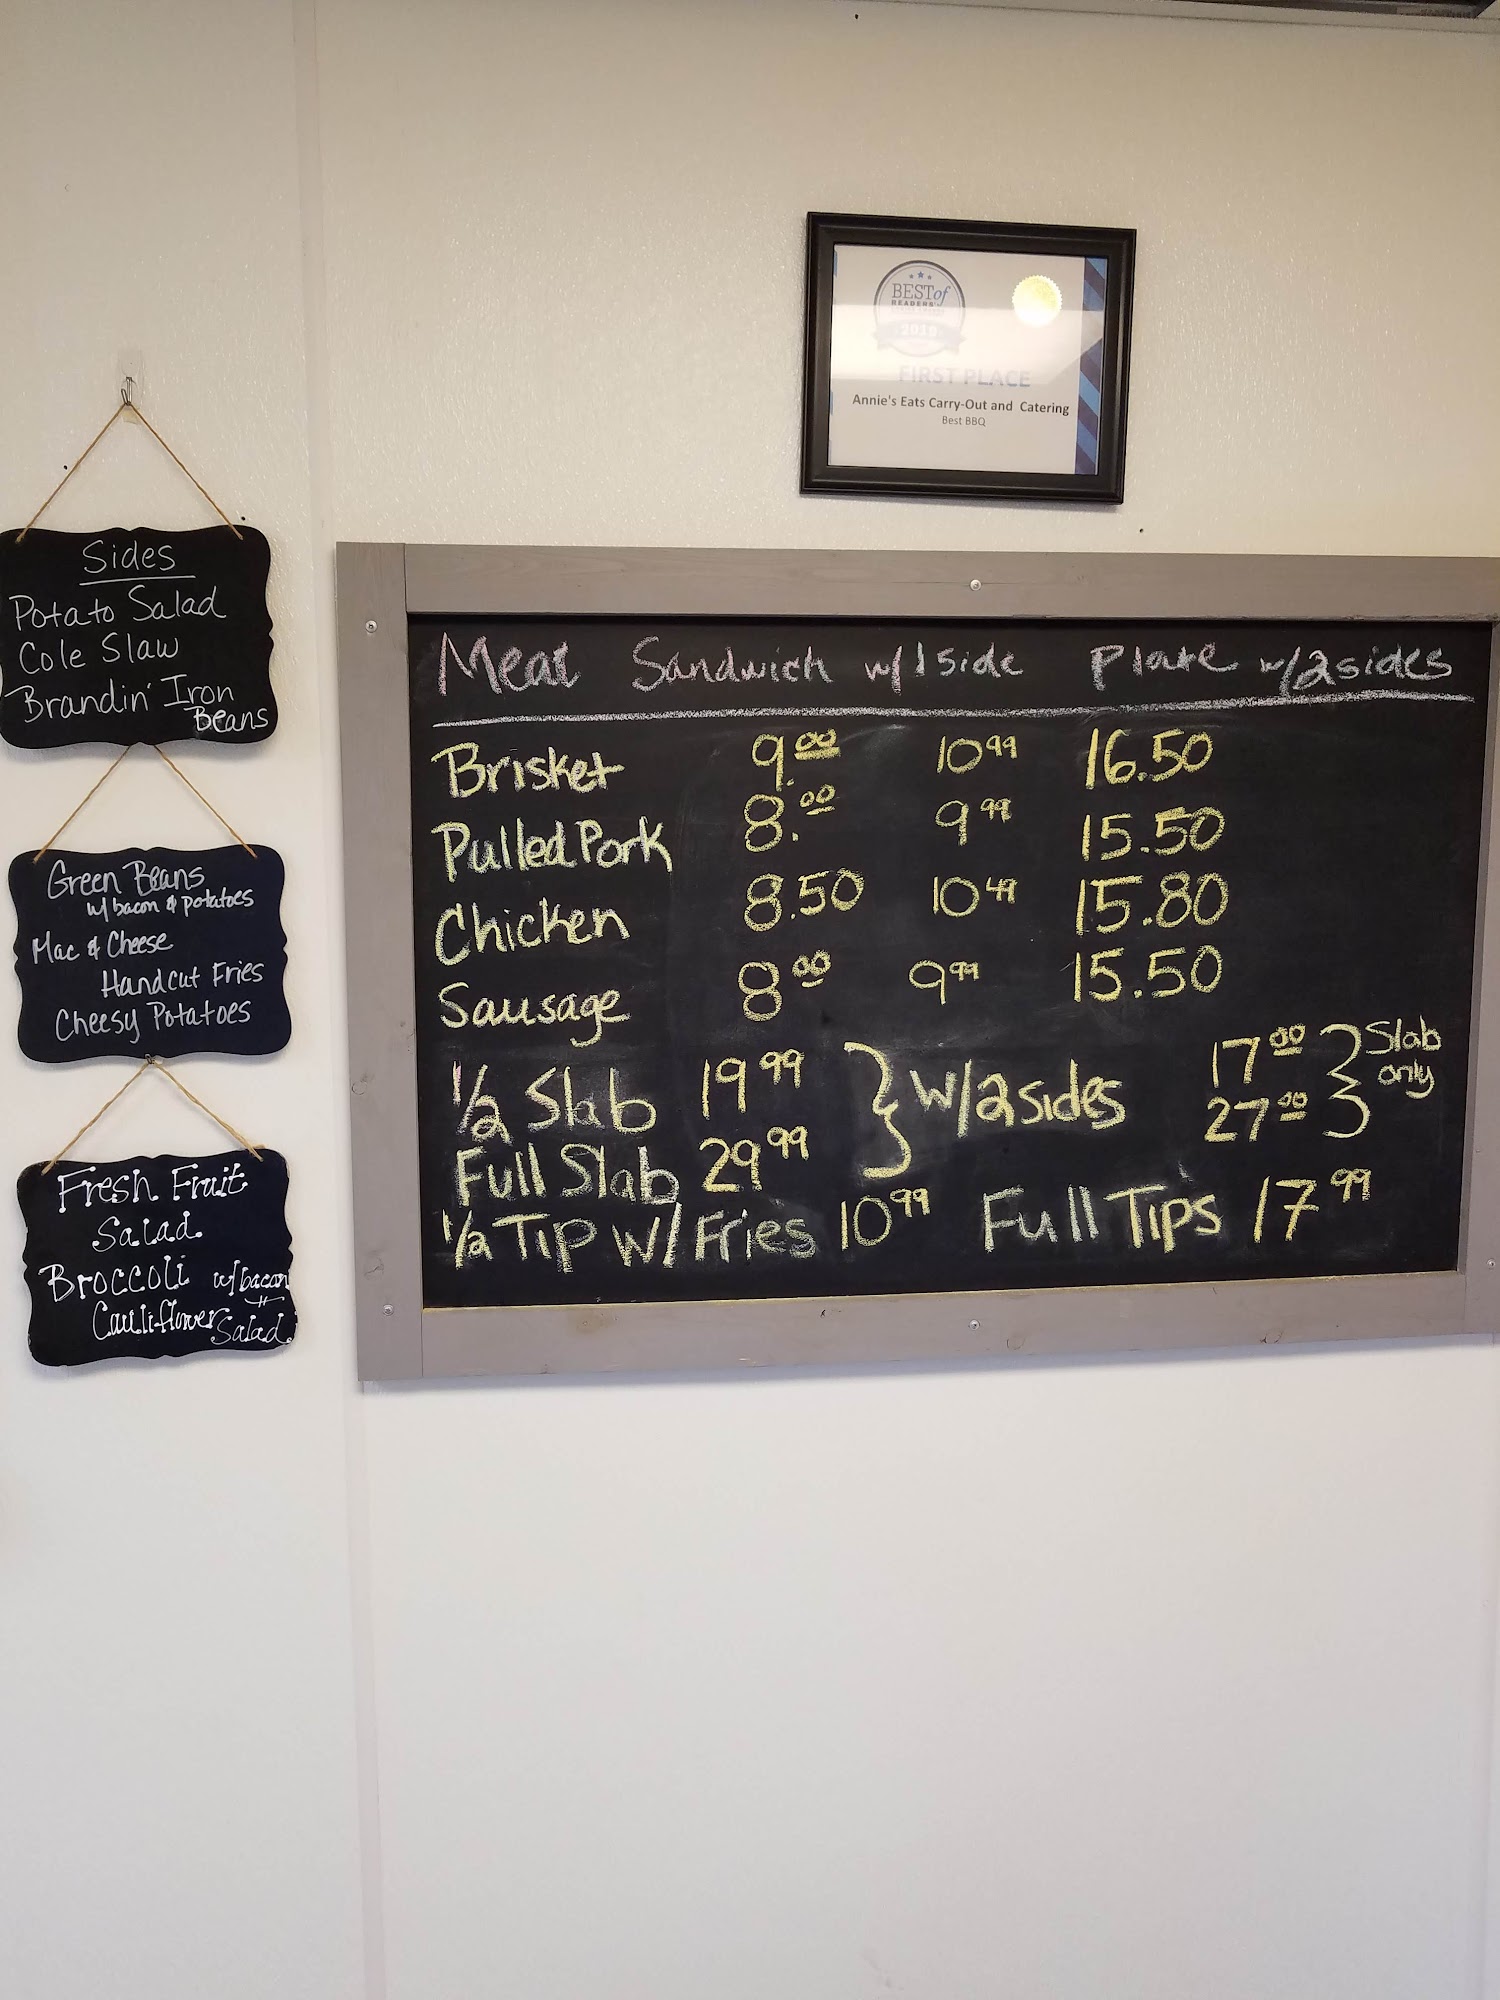 BEST of
READERS'
2019
FIRST PLACE
Annie's Eats Carry-Out and Catering
Best BBQ
Sides
Potato Salad
Cole Slaw
Brandin' Iron
Beans
Green Beans
w/ bacon & potatoes
Mac & Cheese
Handcut Fries
Cheesy Potatoes
Fresh Fruit
Salad
Broccoli w/bacon
Cauliflower Salad
Meat Sandwich w/1 Side Plate w/2 sides
Brisket 9.00 10.99 16.50
Pulled Pork 8.00 9.99 15.50
Chicken 8.50 10.49 15.80
Sausage 8.00 9.99 15.50
1/2 Slab 19.99 } w/2 sides 17.00 } Slab only
Full Slab 29.99 27.00
1/2 Tip w/ Fries 10.99 Full Tips 17.99